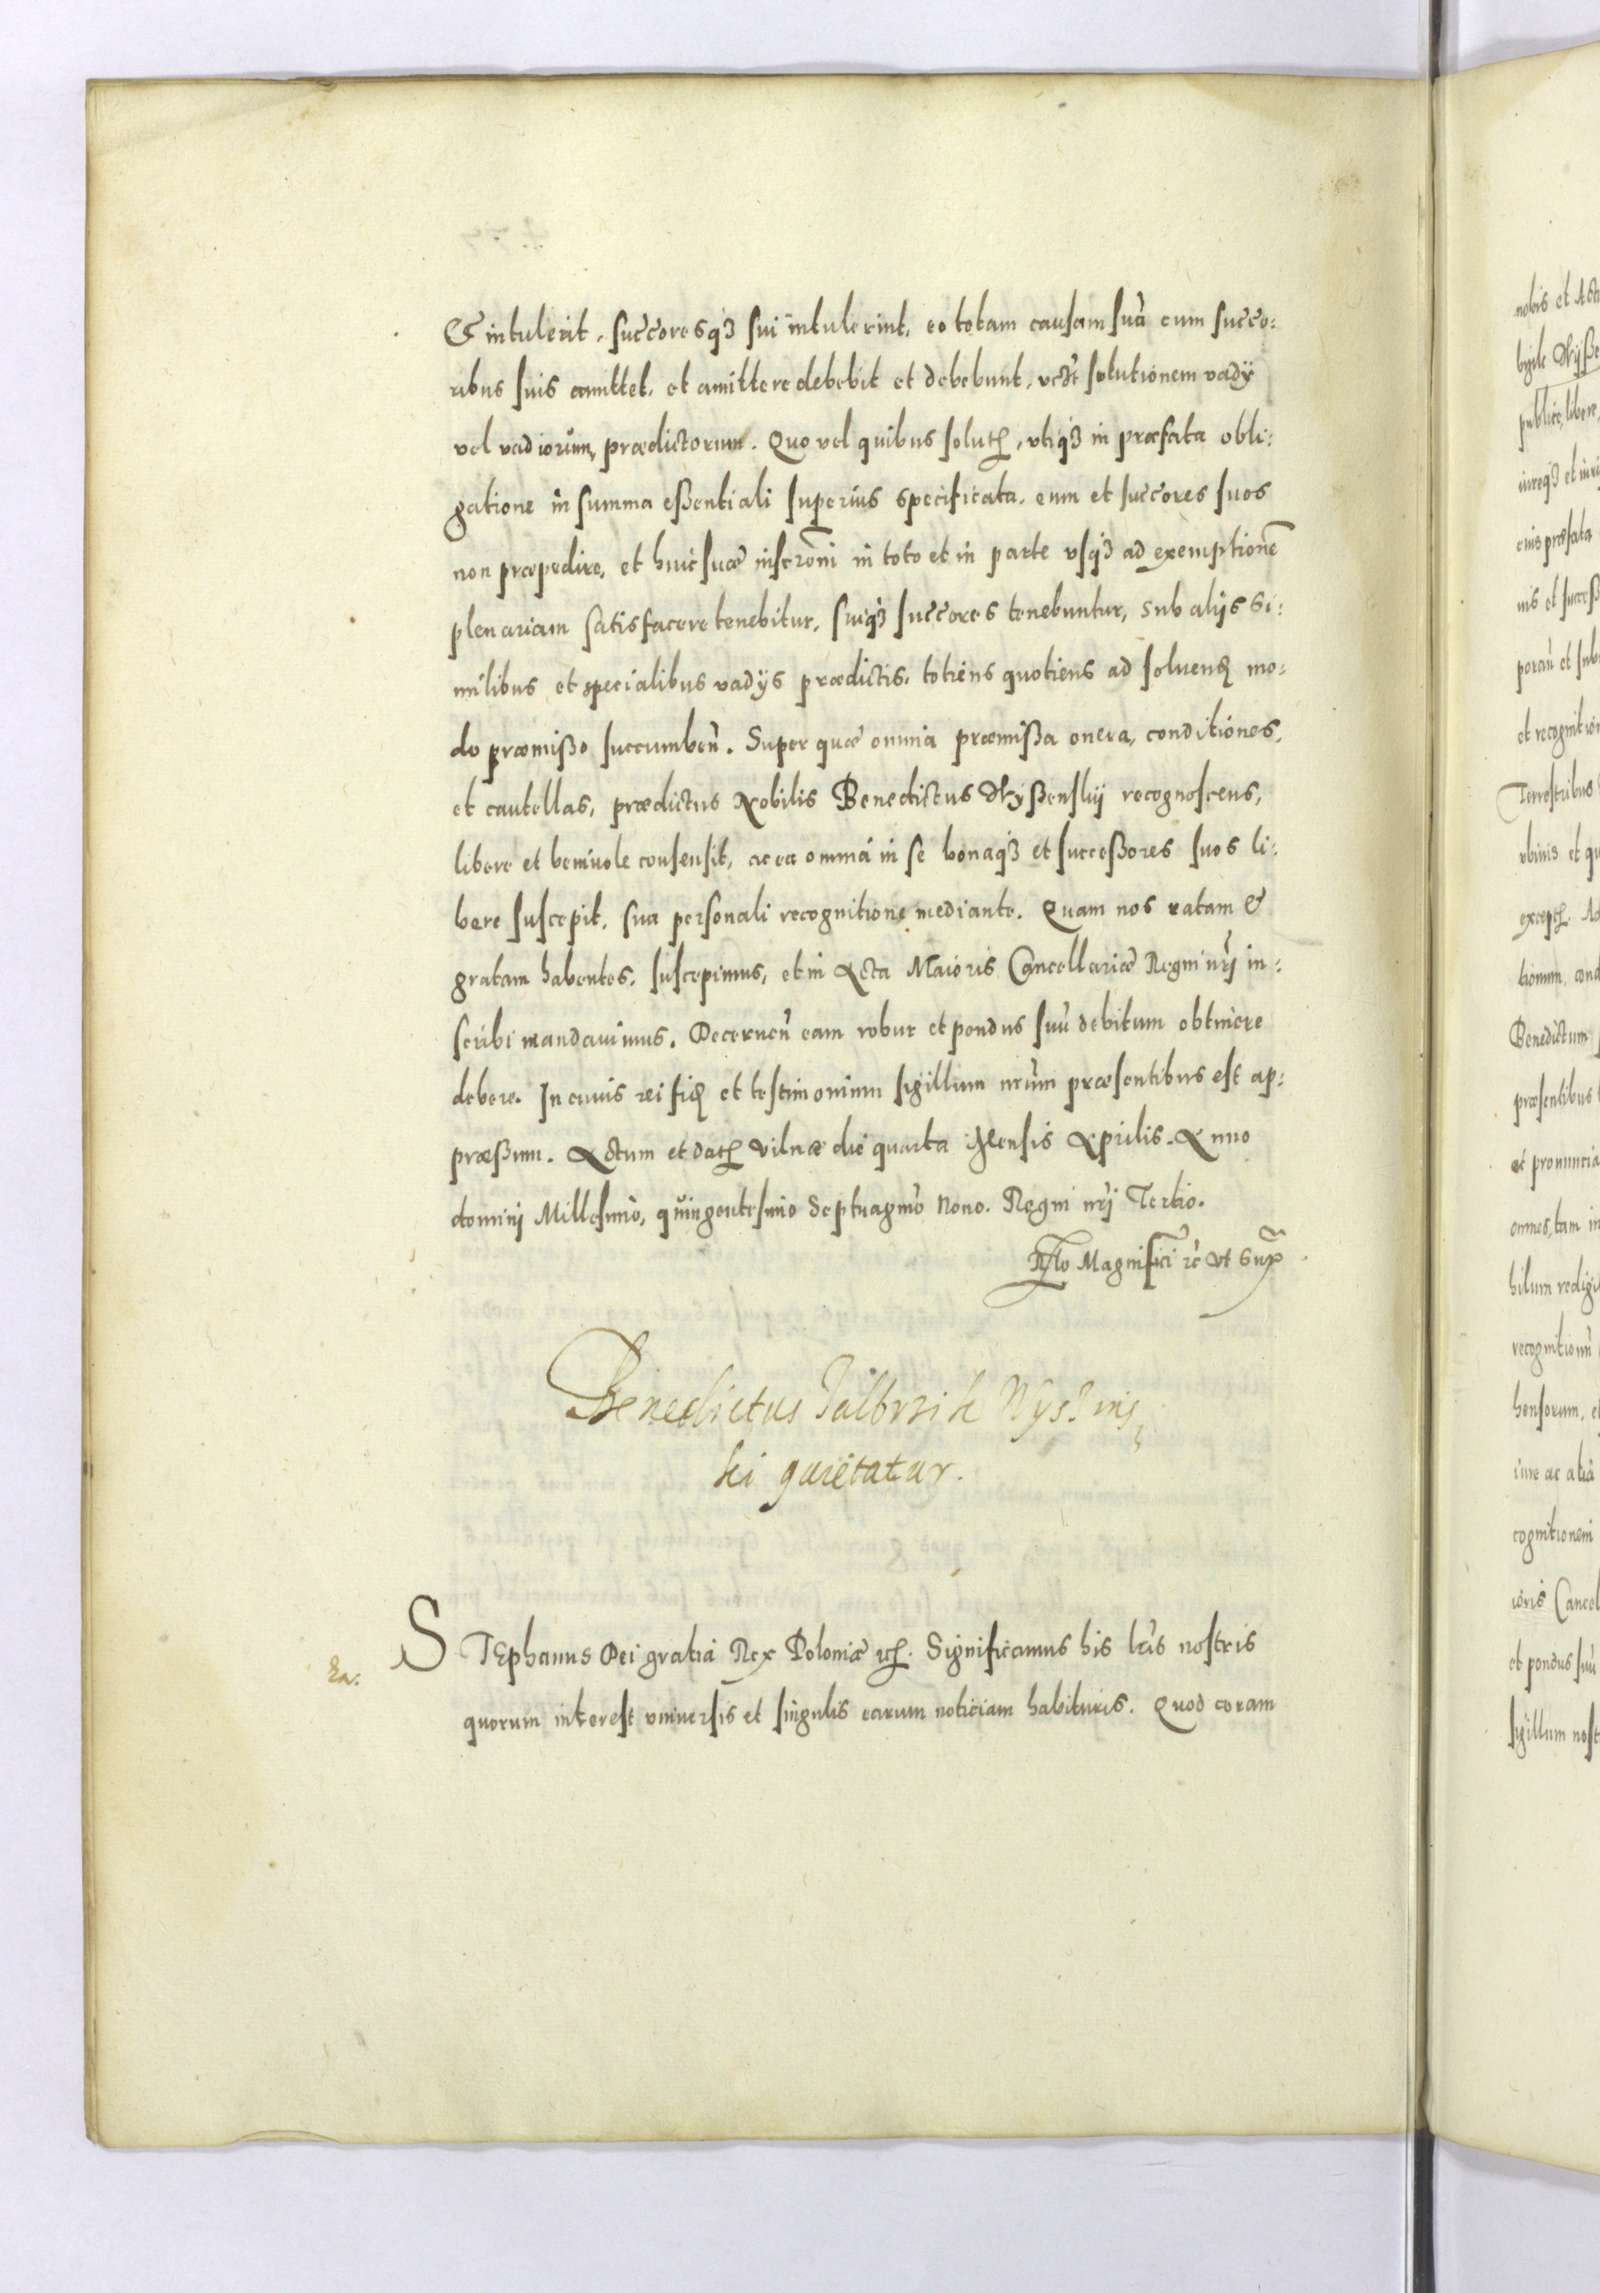 Et intulerit, succoresq3 sui intulerint, eo totam causam suã cum succo:
ribus suis amittet, et amittere debebit et debebunt, solutionem vadÿ
vel vadiorum, prædictorum. Quo vel quibus solut, utiq3 in præfata obli:
gatione in summa eßentiali superius specificata, eum et succores suos
non præpedire, et huic suæ inscrõni in toto et in parte usq3 ad exemptionẽ
plenariam satisfacere tenebitur, suiq3 succores tenebuntur, sub alijs si:
milibus et specialibus vadÿs prædictis, totiens quotiens ad soluend mo:
do præmißo succumbeñ. Super quæ omnia præmißa onera, conditiones,
et cautellas, prædictus Nobilis Benedictus Wÿßenskij recognoscens,
libere et beniuole consensit, ac ea omnia in se bonaq3 et succeßores suos li:
bere suscepit, sua personali recognitione mediante. Quam nos ratam &
gratam habentes, suscepimus, et in Acta Maioris Cancellariæ Regni nri in:
scribi mandauimus. Decerneñ eam robur et pondus suũ debitum obtinere
debere. In cuius rei fid et testimonium sigillum nrum præsentibus est ap:
præßum. Actum et dat Vilnæ die quarta Mensis Aprilis. Anno
domini Millesimo, quingentesimo Septuagmo Nono. Regni nri Tertio.
Rlo Magnifici rc ut Sup
Benedictus Jalbrzik Wysins
ki quietatur.
STEphanus Dei gratia Rex Poloniæ rc. Significamus his lris nostris
quorum interest vniuersis et singulis earum noticiam habituris. Quod coram
nobis et Act
publice, libere,
iureq3 et
eius præfata
et recognition
Terrestribus
Benedictum
præsentibus
et pronuncia
omnes, tam in
hilum redigi
iure ac alia
cognitionem
ioris Cancel
et pondus suũ
sigillum nost